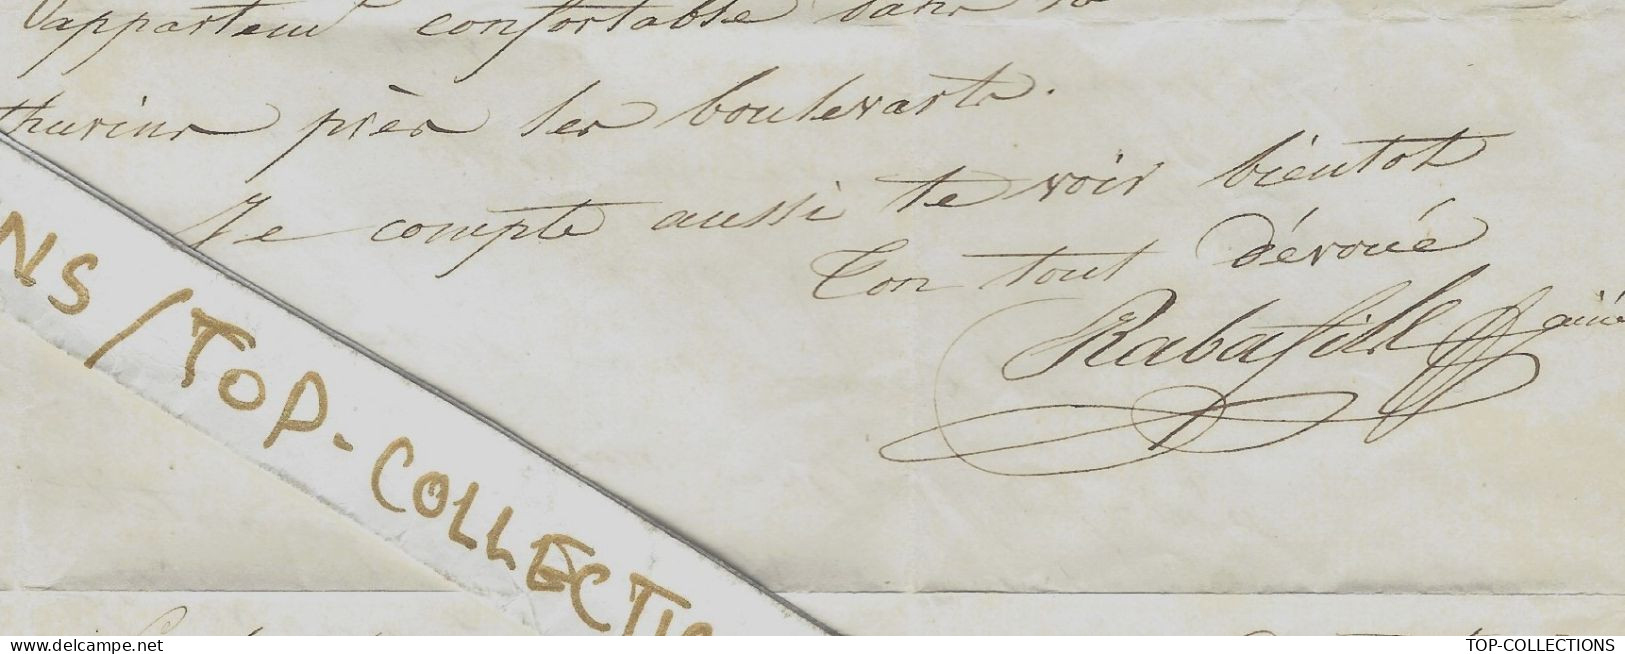 l'appartem^t confortable dans
thurins près les boulevarts.
Je compte aussi te voir bientot
Ton tout dévoué
Rabasfille ainé
NS / TOP-COLLECTI
TOP-COLLECTIONS